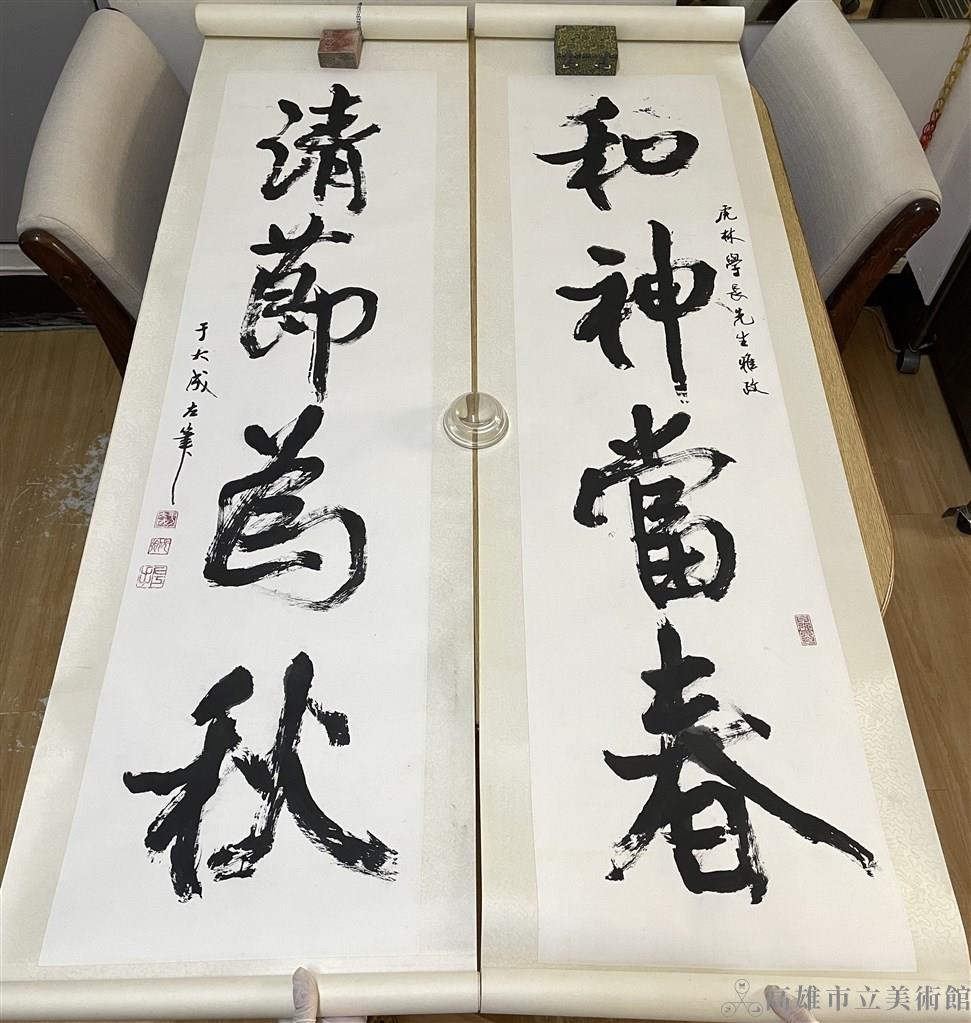 和神當春
虎林學長先生雅政
清節為秋
于大成左筆
高雄市立美術館